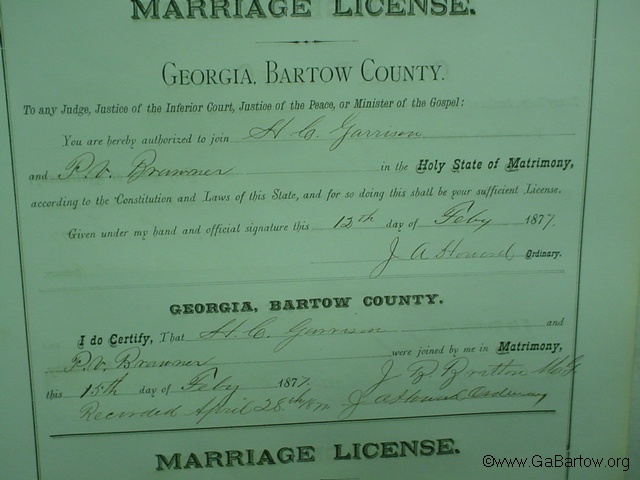 MARRIAGE LICENSE.
GEORGIA, BARTOW COUNTY.
To any Judge, Justice of the Inferior Court, Justice of the Peace, or Minister of the Gospel:
You are hereby authorized to join H. C. Garrison
and P. V. Brawner in the Holy State of Matrimony,
according to the Constitution and Laws of this State, and for so doing this shall be your sufficient License.
Given under my hand and official signature this 12th day of Feby 1877.
J A Howard Ordinary.
GEORGIA, BARTOW COUNTY.
I do Certify, That H. C. Garrison and
P. V. Brawner were joined by me in Matrimony,
this 15th day of Feby 1877. J B Britton
Recorded April 28th J A Howard Ordinary
MARRIAGE LICENSE.
©www.GaBartow.org